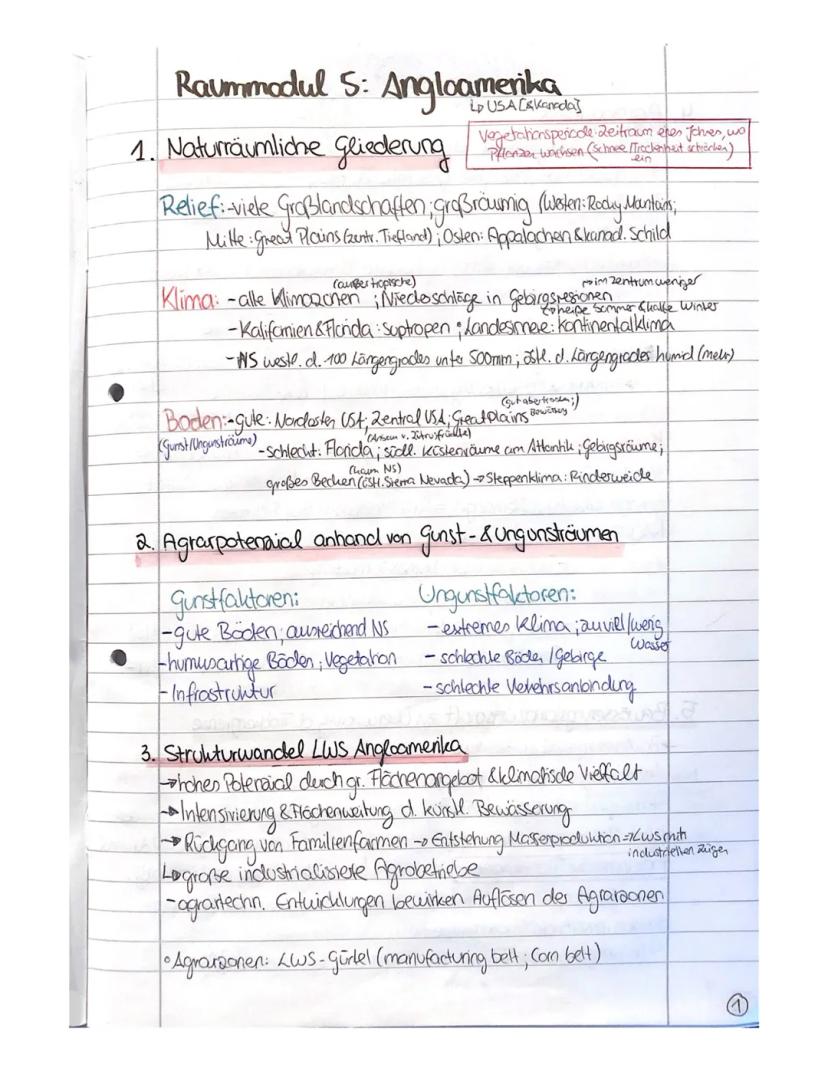 Raummodul 5: Angloamerika
↳ USA [& Kanada]
Vegetationsperiode: Zeitraum eines Jahres, wo
Pflanzen wachsen (Schnee/Trockenheit schränken)
ein
1. Naturräumliche Gliederung
Relief: - viele Großlandschaften; großräumig (Westen: Rocky Mountains;
Mitte: Great Plains (zentr. Tiefland); Osten: Appalachen & kanad. Schild
(außer tropische) → im Zentrum weniger
Klima: - alle Klimazonen ; Niederschläge in Gebirgsregionen
↳ heiße Sommer & kalte Winter
- Kalifornien & Florida: Suptropen ; Landesinnere: kontinentalklima
- NS westl. d. 100 Längengrades unter 500mm; östl. d. Längengrades humid (mehr)
(gut aber trocken;)
Bewässerung
Boden: - gute: Nordosten USA; Zentral USA; Great Plains
(Gunst/Ungunsträume) (Anbau v. Zitrusfrüchte)
- schlecht: Florida; südl. Küstenräume am Atlantik; Gebirgsräume;
(kaum NS)
großes Becken (östl. Sierra Nevada) → Steppenklima: Rinderweide
2. Agrarpotenzial anhand von Gunst- & Ungunsträumen
Gunstfaktoren: Ungunstfaktoren:
- gute Böden; ausreichend NS - extremes Klima; zu viel/wenig
Wasser
- humusartige Böden; Vegetation - schlechte Böden / Gebirge
- Infrastruktur - schlechte Verkehrsanbindung
3. Strukturwandel LWS Angloamerika
→ hohes Potenzial durch gr. Flächenangebot & klimatische Vielfalt
→ Intensivierung & Flächenweitung d. künstl. Bewässerung
→ Rückgang von Familienfarmen → Entstehung Massenproduktion → LWS mit
industriellen Zügen
↳ große industrialisierte Agrobetriebe
- agrartechn. Entwicklungen bewirken Auflösen des Agrarzonen
• Agrarzonen: LWS-Gürtel (manufacturing belt; Corn belt)
1